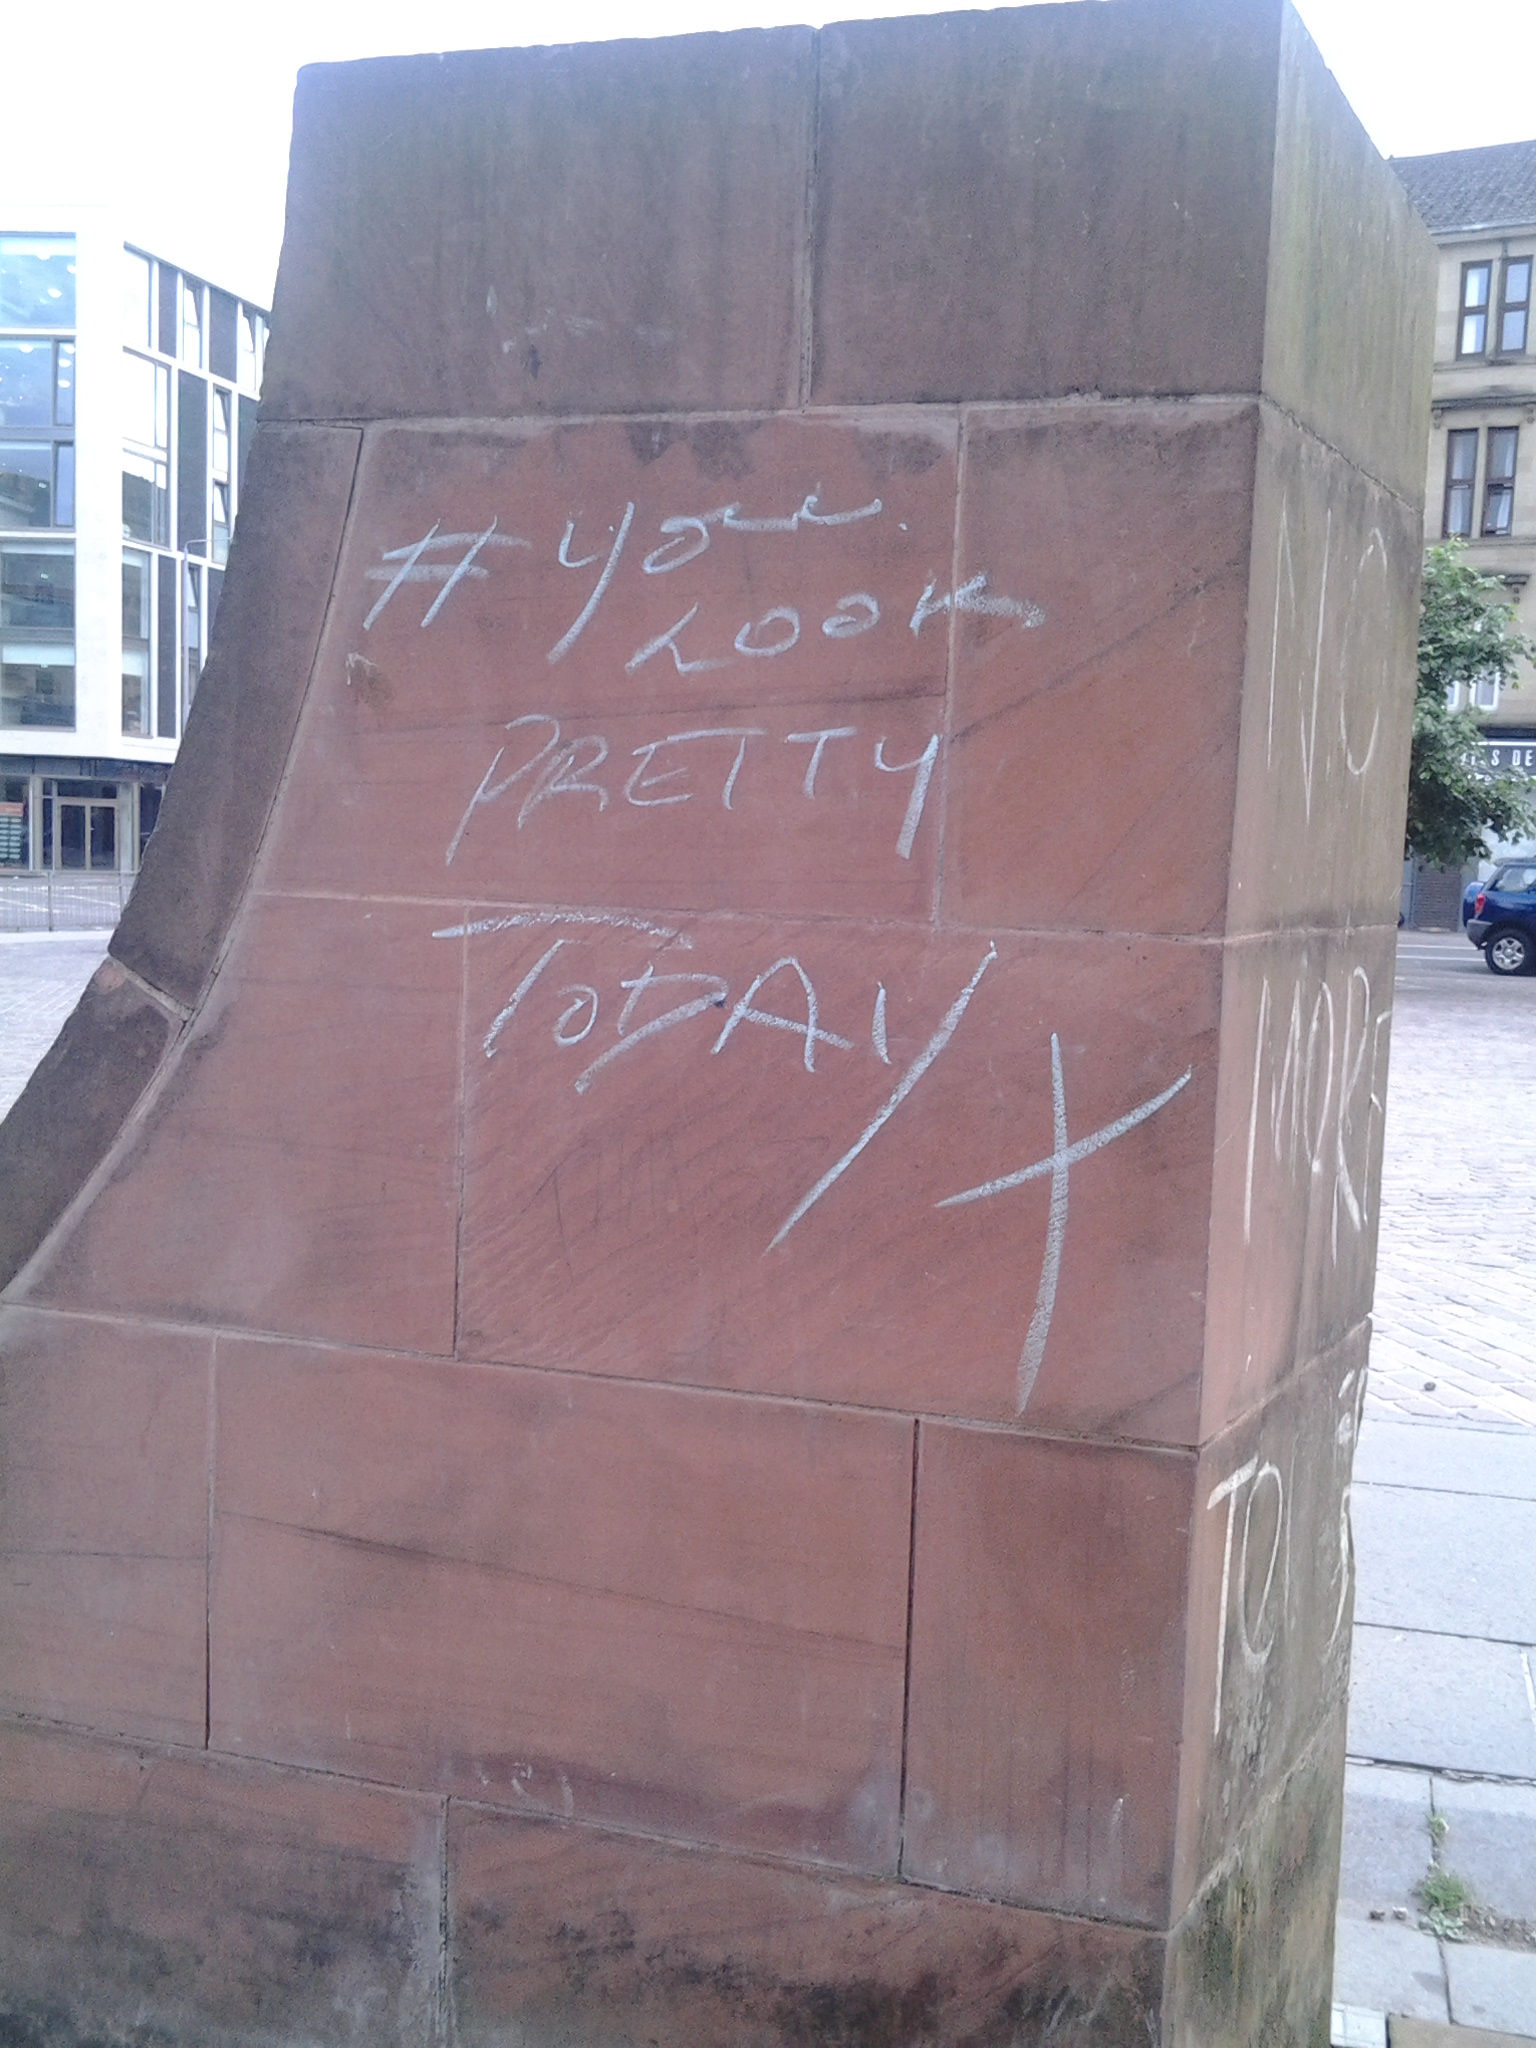 # You
LOOK
PRETTY
TODAY
X
NO
MORE